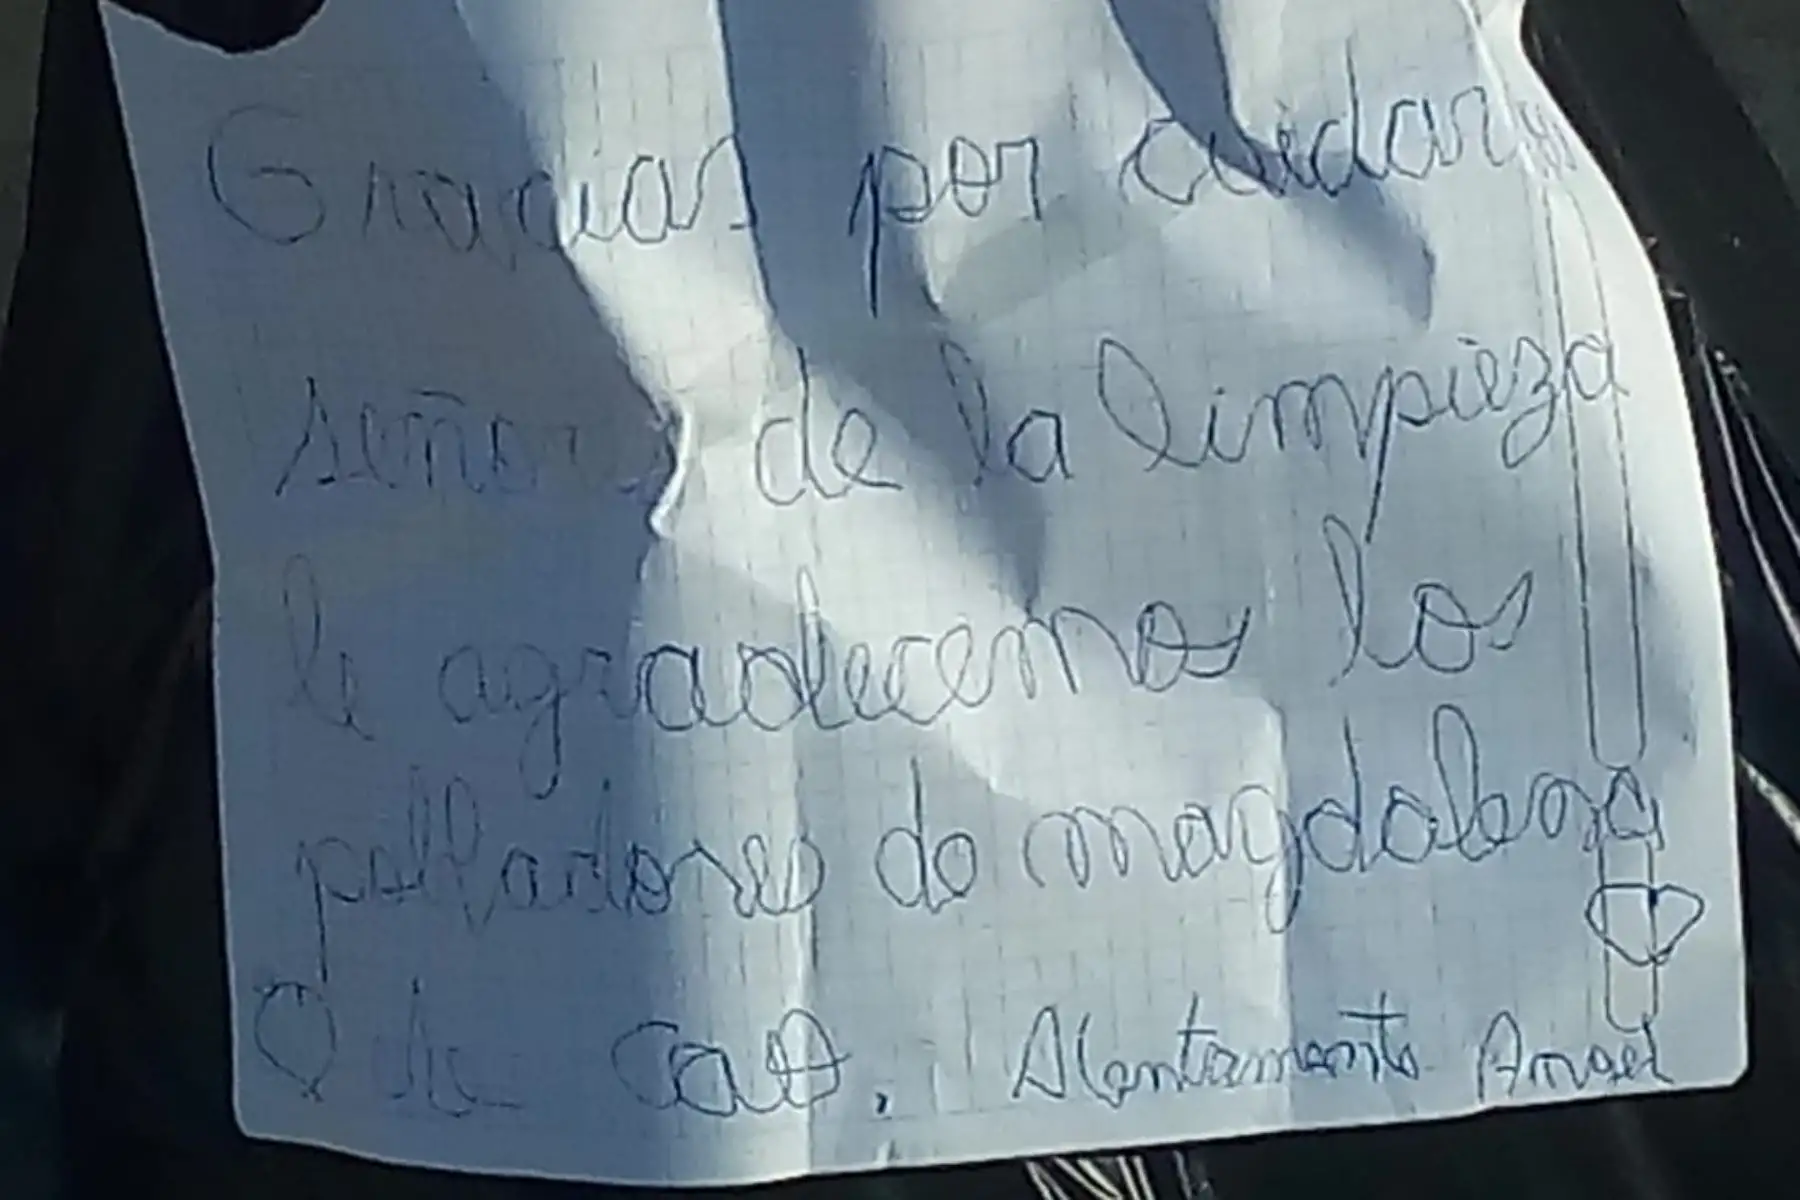 Gracias por cuidar
señores de la limpieza
le agradecemos los
pobladores de magdalena
de Cao. Atentamente Angel